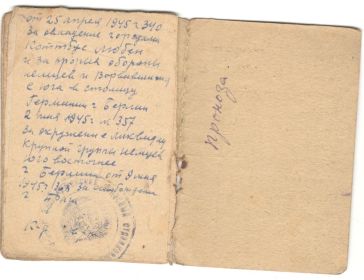 от 25 апреля 1945 г 340
за овладение городами
Коттбус Любен
и за прорыв обороны
немцев и ворвавшимся
с юга в столицу
Германии г Берлин
2 мая 1945 г № 357
за окружение и ликвидац
крупной группы немцев
юго восточнее
г Берлина от 2 мая
1945 г за
г
К-р
проноза